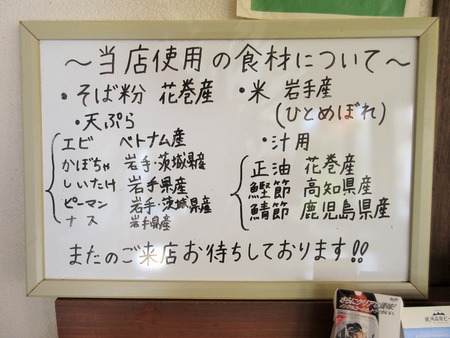 ～当店使用の食材について～
・そば粉 花巻産
・天ぷら
エビ ベトナム産
かぼちゃ 岩手・茨城県産
しいたけ 岩手県産
ピーマン 岩手・茨城県産
ナス 岩手県産
・米 岩手産
(ひとめぼれ)
・汁用
正油 花巻産
鰹節 高知県産
鯖節 鹿児島県産
またのご来店お待ちしております!!
さらにクリアな後味!